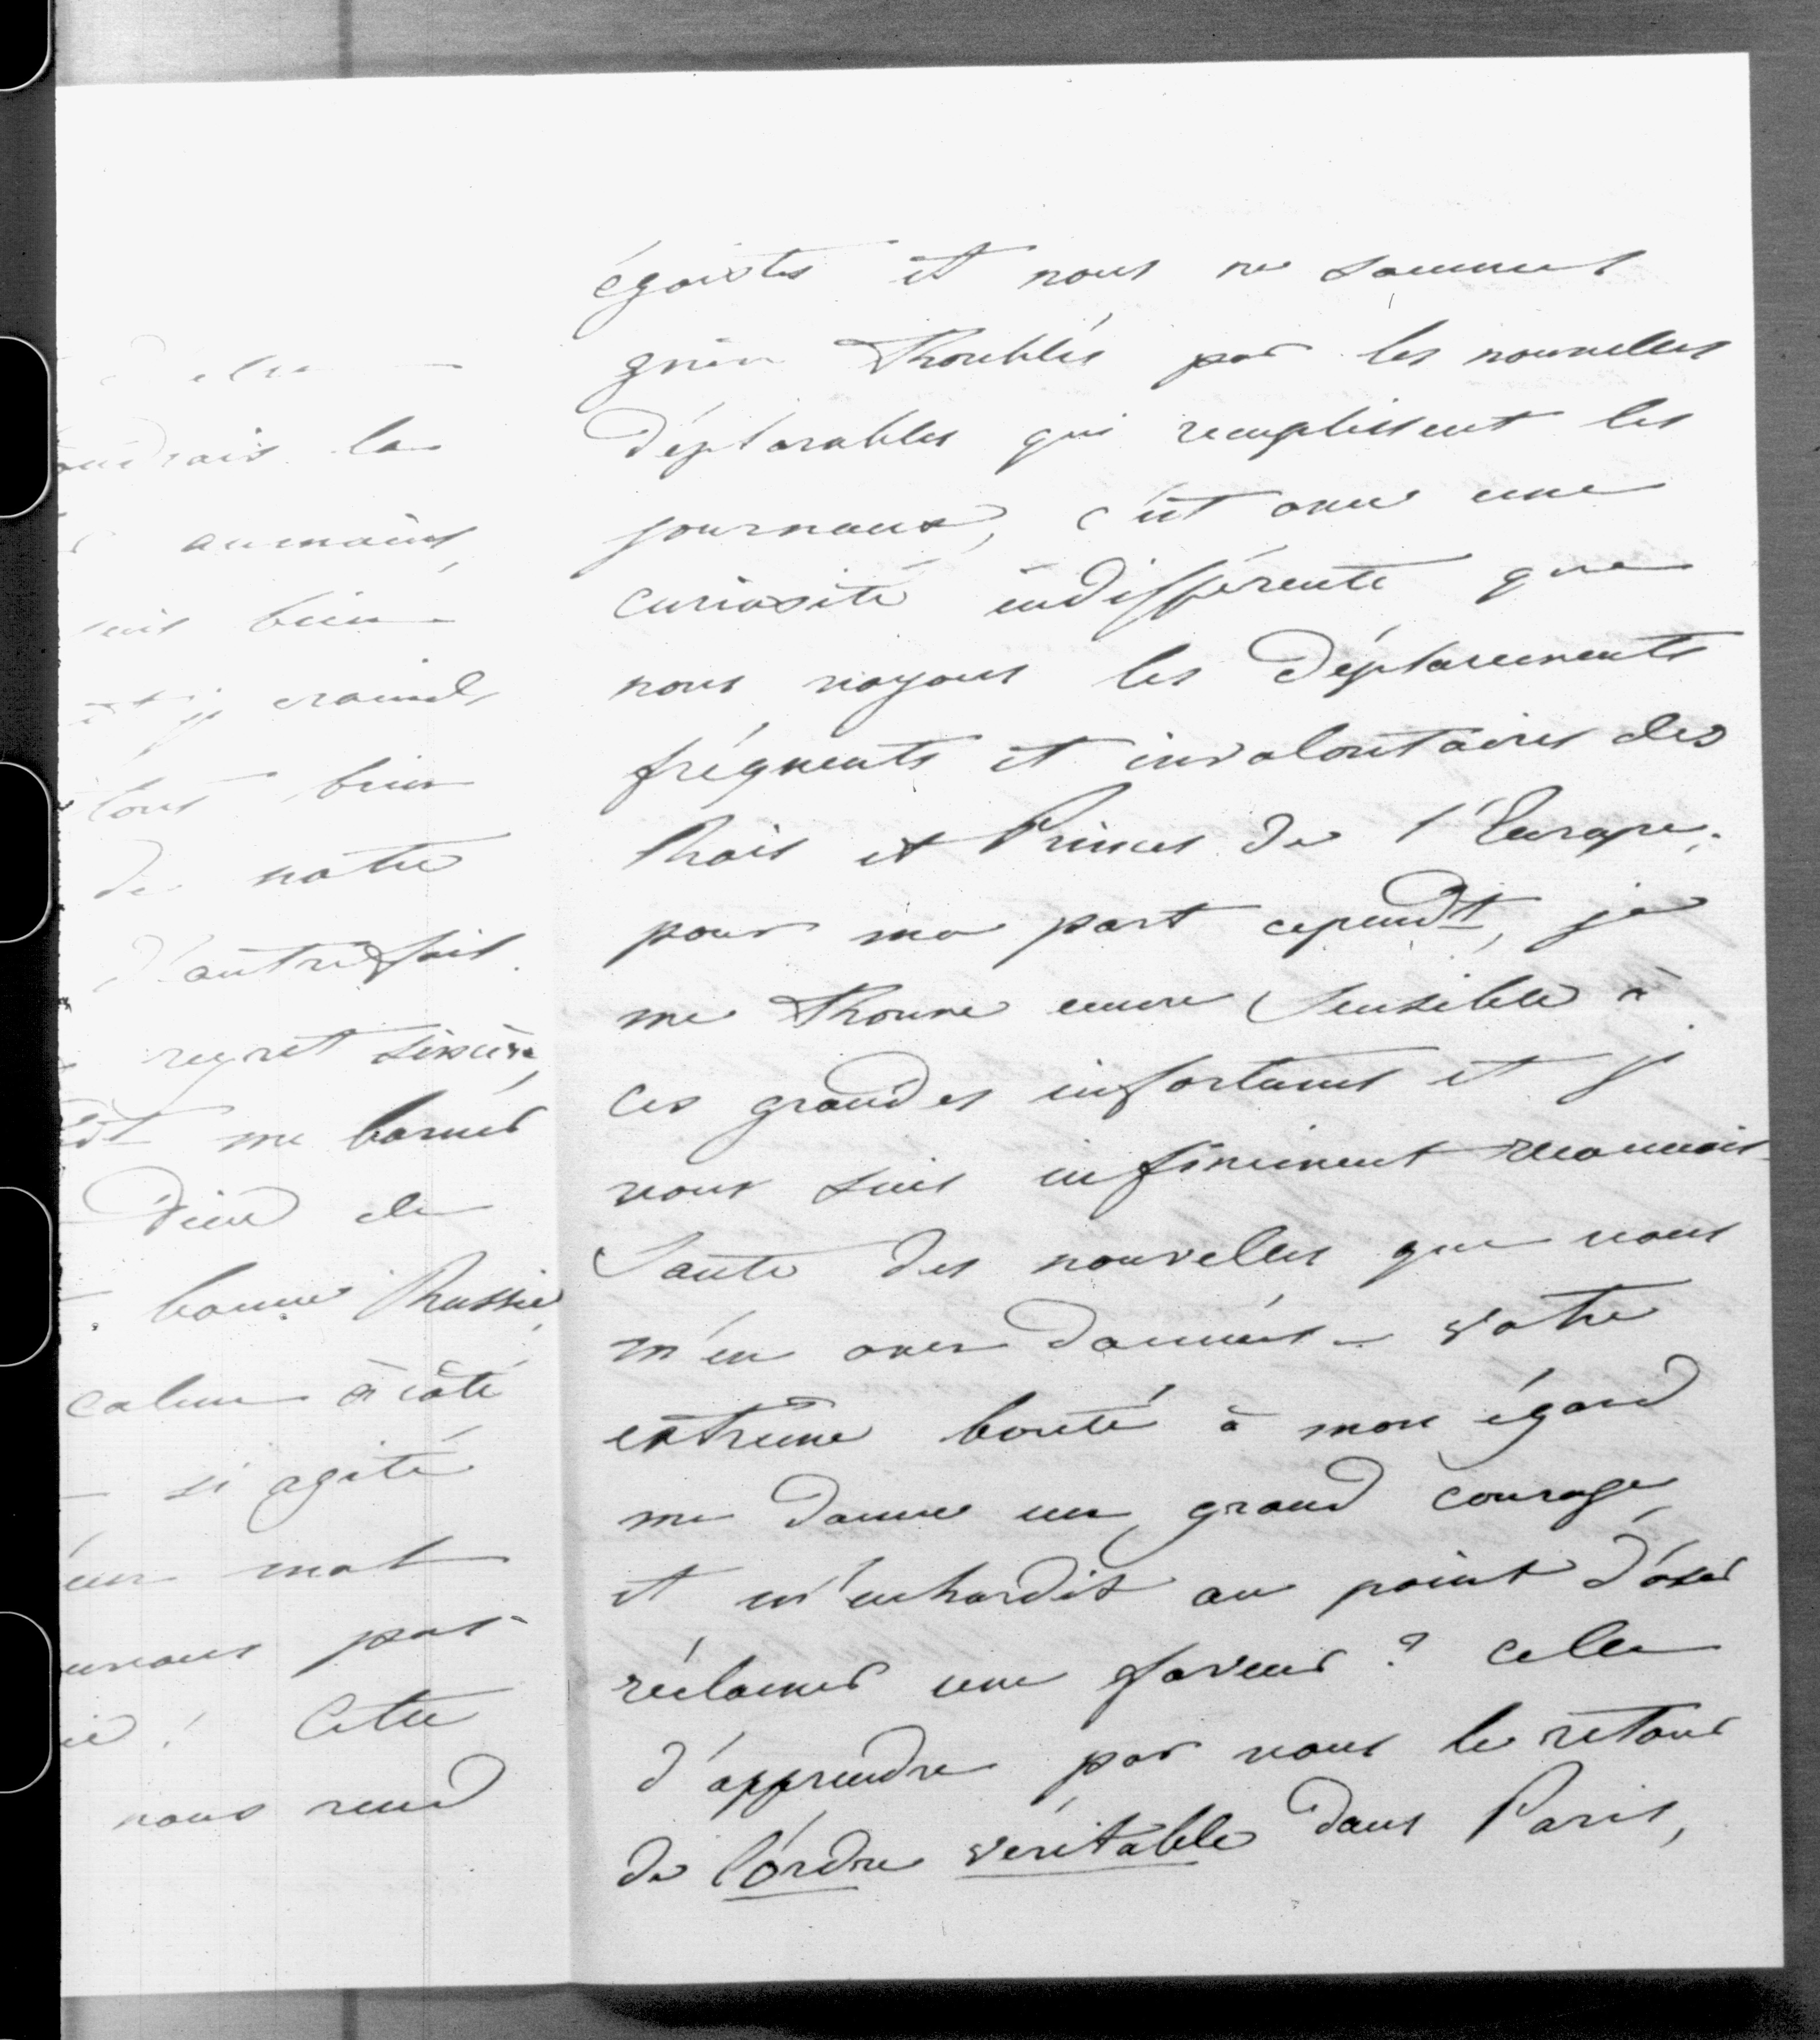 oudrais la
aumoins,
suis bien
et j crains
tout bien
de notre
d'autrefois.
regret sincère,
me borner
Dieu de
bonne Russie,
calme à côté
si agité
un mot
pas
! Cette
nous rend
égoistes et nous ne sommes
guère troublés par les nouvelles
déplorables qui remplissent les
journaux, c'est avec une
curiosité indifférente que
nous voyons les déplacements
fréquents et involontaires des
Rois et Princes de l'Europe;
pour ma part cependt, je
me trouve encore sensible à
ces grandes infortunes et je
vous suis infiniment reconnais-
sante des nouvelles que vous
m'en avez données – votre
extrême bonté à mon égard
me donne un grand courage,
et m'enhardit au point d'oser
réclamer une faveur? celle
d'apprendre par vous le retour
de l'ordre véritable dans Paris,